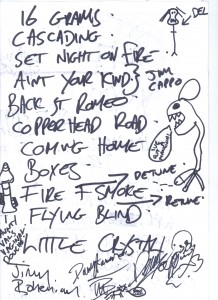 16 GRAMS
DEL
CASCADING
SET NIGHT ON FIRE
AINT YOUR KIND } JIM CAPPO
BACK ST ROMEO
COPPERHEAD ROAD
COMING HOME
BOXES
DETUNE
FIRE & SMOKE
RETUNE
FLYING BLIND
LITTLE CRYSTAL
Jimmy
Bohemian